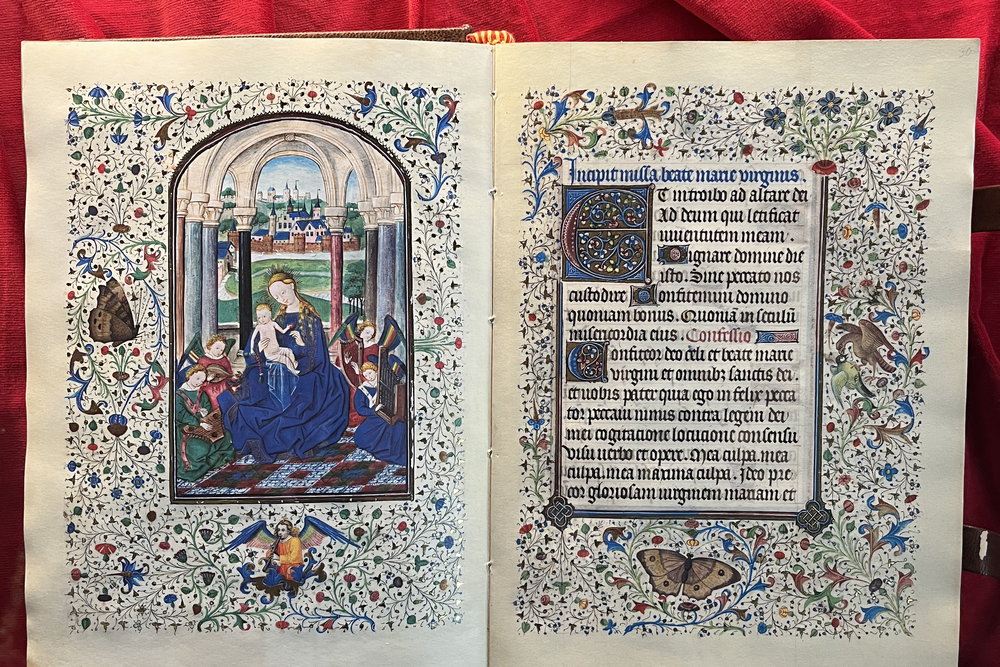 Incipit missa beate marie virginis
Et introibo ad altare dei
Ad deum qui letificat
iuventutem meam.
Dignare domine die
isto. Sine peccato nos
custodire Confitemini domino
quoniam bonus. Quoniā in seculū
misericordia eius. Confessio
Confiteor deo celi et beate marie
virgini et omnibꝫ sanctis dei.
et vobis pater quia ego infelix pecca
tor peccavi nimis contra legem dei
mei cogitacione locucione consensu
visu verbo et opere. Mea culpa. mea
culpa. mea maxima culpa. Ideo pre
cor gloriosam virginem mariam et